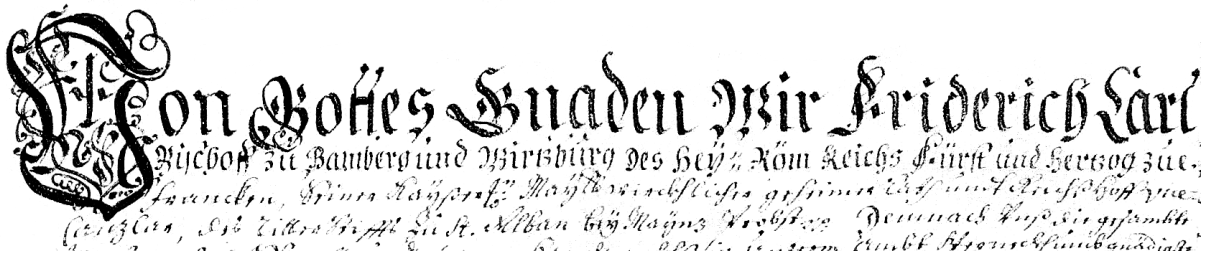 Von Gottes Gnaden Wir Friderich Carl
Bischoff zu Bamberg und Wirtzburg des Hey: Röm Reichs Fürst und Hertzog zue
Francken, Seiner Kayßerl: Mayst: würcklicher geheimer Rath und Reichs Hoff Vice
Canzlar, des Ritter Stiffts zu St. Alban bey Maynz Probst Demnach Unß die gesambte